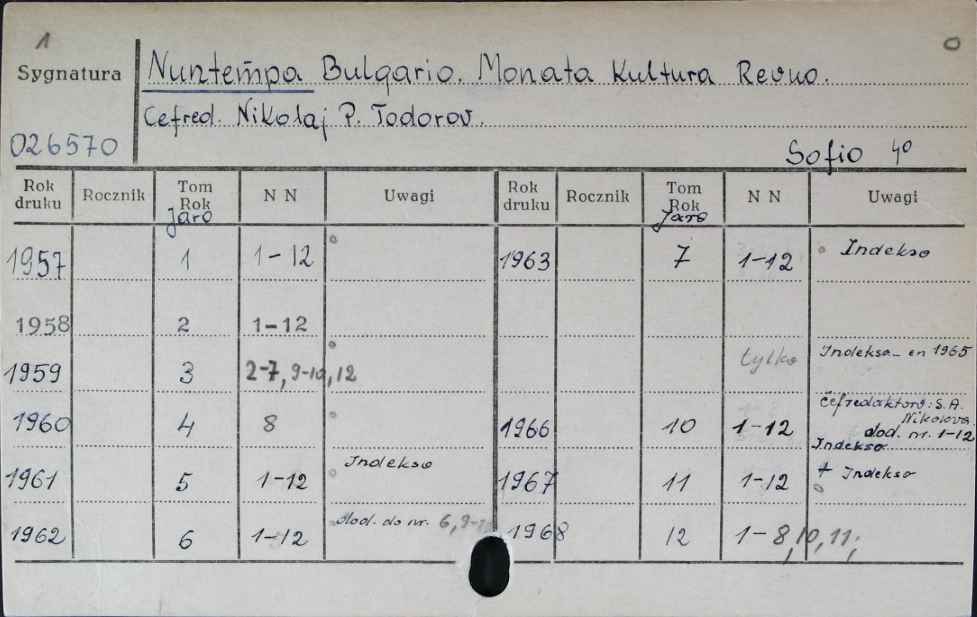 1
O
Sygnatura
Nuntempa Bulgario. Monata Kultura Revuo.
Cefred. Nikolaj P. Todorov.
026570
Sofio 4°
Rok druku Rocznik Tom Rok Jaro N N Uwagi Rok druku Rocznik Tom Rok Jaro N N Uwagi
1957 1 1-12 1963 7 1-12 Indekso
1958 2 1-12
1959 3 2-7, 9-10, 12 tylko Indeksa - en 1965
1960 4 8 1966 10 1-12 Ĉefredaktoro: S.A. Nikolova
dod. nr. 1-12
Indekso
1961 5 1-12 Indekso 1967 11 1-12 + Indekso
1962 6 1-12 dod. do nr. 6, 1968 12 1-8, 10, 11,